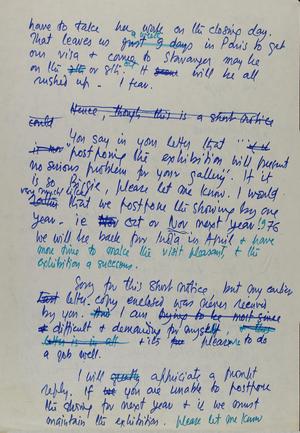 have to take her work on the closing day.
That leaves us just 9 days in Paris to get
our visa & come to Stavanger may be
on the 7th or 8th. It will be all
rushed up. I fear.
Hence, though this is a short notice
could
You say in your letter that
postponing the exhibition will present
no serious problem for your gallery. If it
is so Biggie, please let me know. I would
very much like that we postpone the showing by one
year. ie Oct or Nov next year 1976
We will be back from India in April & have
more time to make the visit pleasant & the
exhibition a success.
Sorry for this short notice, but my earlier
letter copy enclosed was never received
by you. I am
difficult & demanding for myself,
letter is in all & its pleasure to do
a job well.
I will appriciate a prompt
reply. If you are unable to postpone
the showing for next year & if we must
maintain the exhibition. please let me know